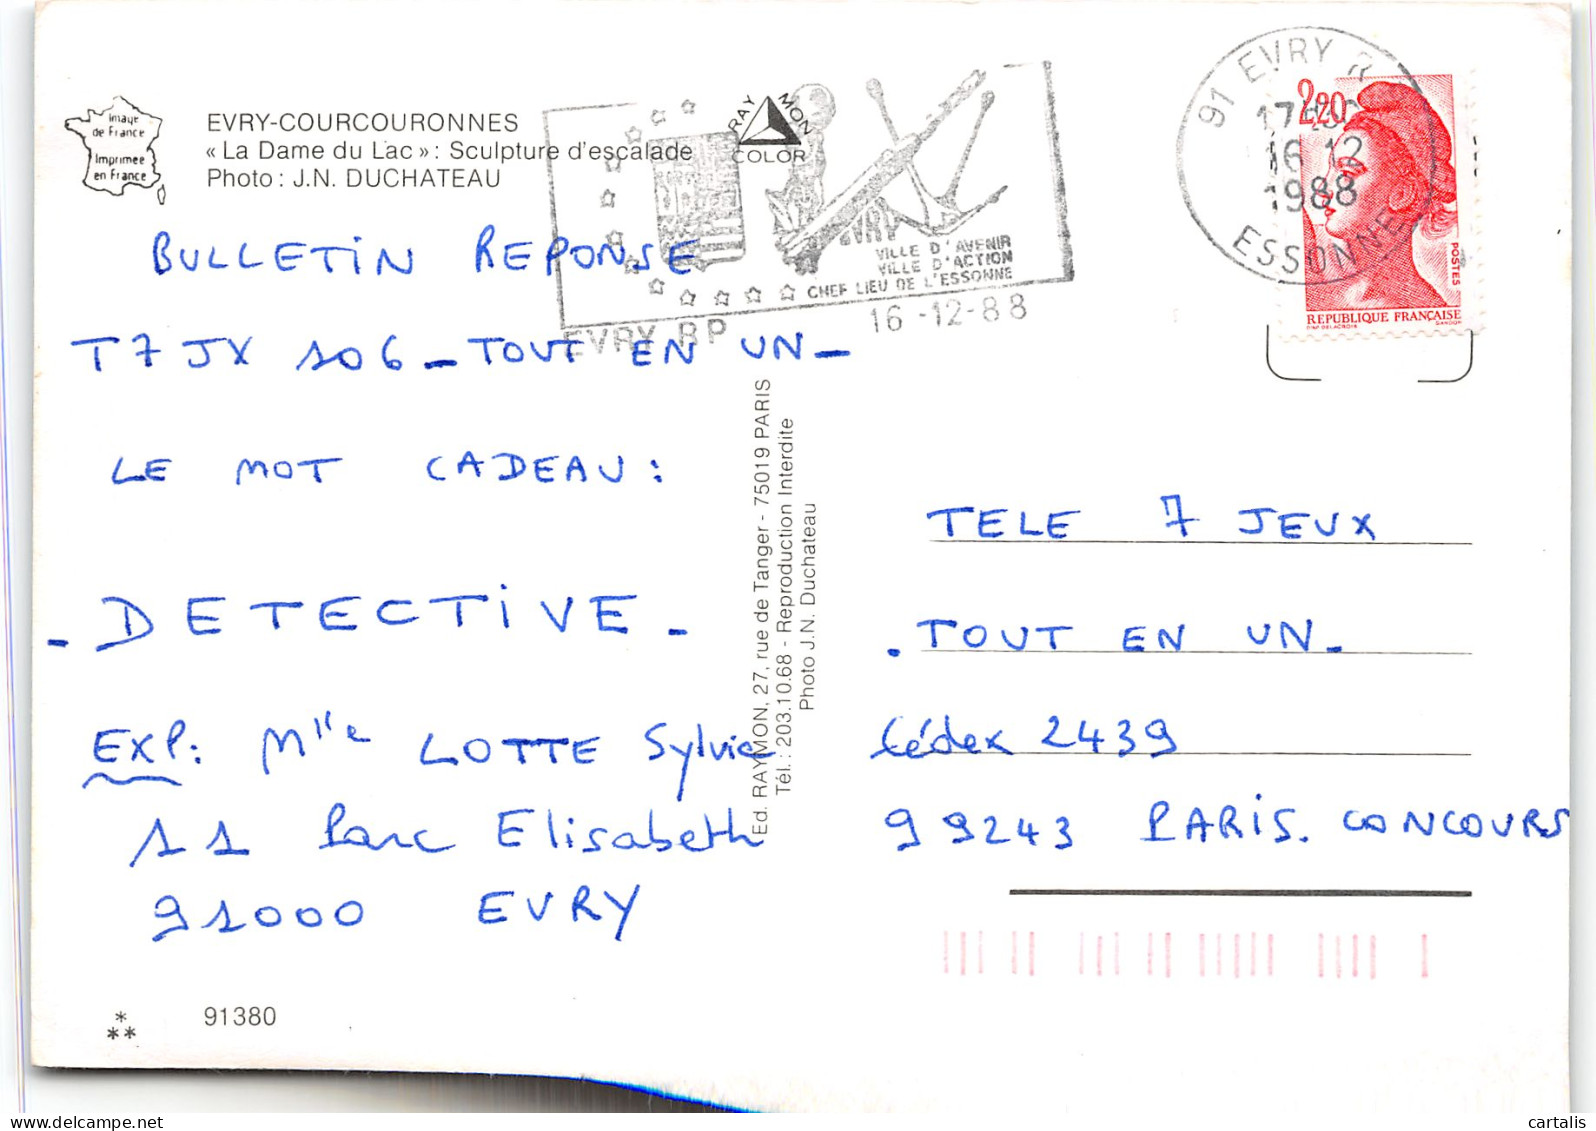 Image
de France
Imprimée
en France
EVRY-COURCOURONNES
« La Dame du Lac » : Sculpture d'escalade
Photo : J.N. DUCHATEAU
RAYMON
COLOR
EVRY
VILLE D'AVENIR
VILLE D'ACTION
CHEF LIEU DE L'ESSONNE
EVRY RP
16-12-88
91 EVRY R
16 12
1988
ESSONNE
2,20
POSTES
REPUBLIQUE FRANÇAISE
D'AP. DELACROIX
GANDON
BULLETIN REPONSE
T7 JX 106 - TOUT EN UN -
LE MOT CADEAU :
- DETECTIVE -
EXP: Mlle LOTTE Sylvie
11 Parc Elisabeth
91000 EVRY
Ed. RAYMON, 27, rue de Tanger - 75019 PARIS
Tél. : 203.10.68 - Reproduction Interdite
Photo J.N. Duchateau
TELE 7 JEUX
- TOUT EN UN -
Cédex 2439
99243 PARIS. CONCOURS
*
**
91380
cartalis